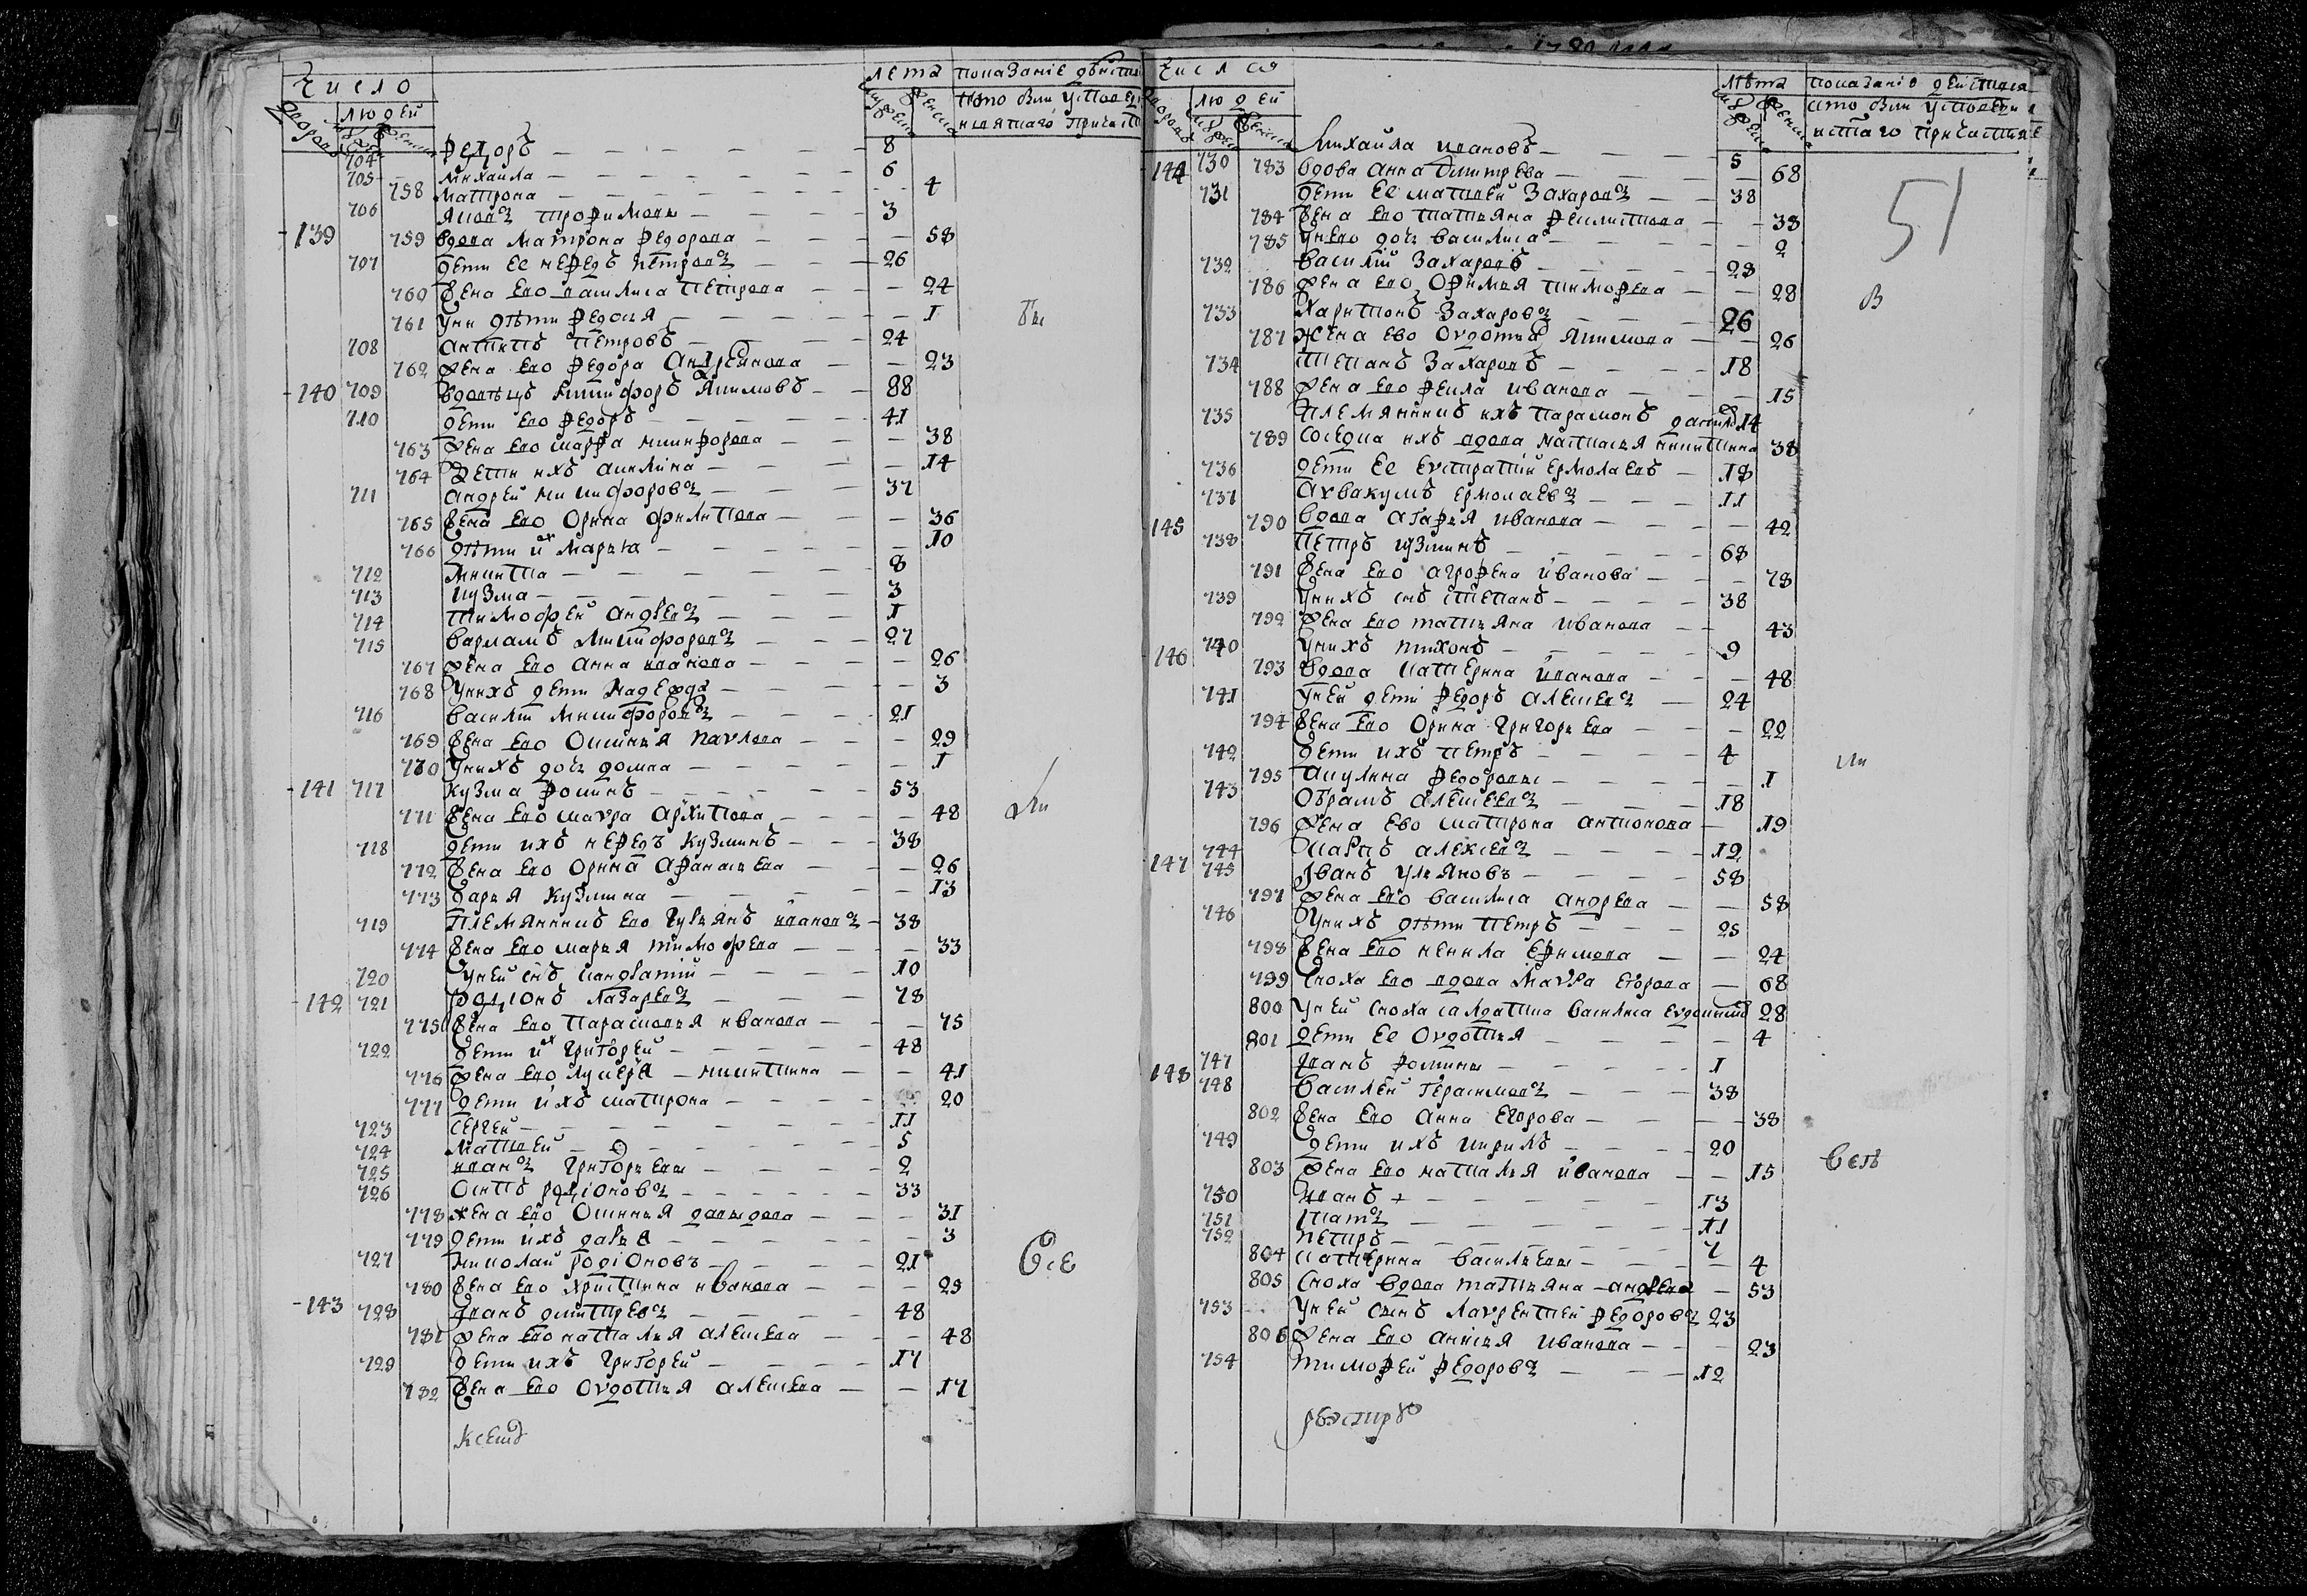 Число
лета показание действа
дворовъ людей
мужеска женска
кто были у исповеди и святаго причаст
704 Федоръ 8
705 Михаила 6
758 Матрона 4
706 Яковъ Трофимовы 3
139 759 вдова Матрона Федорова 58
707 дети ее Нефедъ Петровъ 26
760 жена ево Василиса Петрова 24
761 у них дѣти Федосия 1
708 Антипъ Петровъ 24
762 жена ево Федора Андреянова 23
140 709 вдовъцъ Никифоръ Якимовъ 88
710 дети ево Федоръ 41
763 жена ево Марфа Никифорова 38
764 дети ихъ Акилина 14
711 Андрей Никифоровъ 37
765 жена ево Орина Филипова 36
766 дѣти их Марья 10
712 Никита 8
713 Кузма 3
714 Тимофей Андреевъ 1
715 Варламъ Никифоровъ 27
767 жена ево Анна Иванова 26
768 у нихъ дети Надежда 3
716 Василий Никифоровъ 21
769 жена ево Оксинья Павлова 29
770 у нихъ дочь Домна 1
141 717 Кузма Фоминъ 53
771 жена ево Мавра Архипова 48
718 дети ихъ Нефедъ Кузминъ 38
772 жена ево Орина Афанасьева 26
773 Дарья Кузмина 13
719 племянникъ ево Гурьянъ Ивановъ 38
774 жена ево Марья Тимофеева 33
720 у ней снъ Кандратий 10
142 721 Родионъ Лазаревъ 78
775 жена ево Парасковья Иванова 75
722 дети их Григорей 48
776 жена ево Лукерья Никитина 41
777 дети ихъ Матрона 20
723 Сергей 11
724 Матвей 5
725 Иванъ Григорьевы 2
726 Осипъ Родионовъ 33
778 жена ево Оксинья Давыдова 31
779 дети ихъ Дарья 3
727 Николай Родионовъ 21
780 жена ево Христина Иванова 23
143 728 Иванъ Дмитревъ 48
781 жена ево Наталья Алексеева 48
729 дети ихъ Григорей 17
782 жена ево Овдотья Алексеева 17
бы
ли
все
Число
лѣта показание действа
дворовъ людей
мужеска женска
кто были у исповеди и святаго причастия
51
730 Михаила Ивановъ 5
144 783 вдова Анна Дмитрева 68
731 дети ее Матвей Захаровъ 38
784 жена ево Татьяна Феклистова 38
785 у нево дочь Василиса 2
732 Василий Захаровъ 28
786 жена ево Офимья Тимофеева 28
733 Харитонъ Захаровъ 26
787 жена ево Овдотья Якимова 26
734 Степанъ Захаровъ 18
788 жена ево Фекла Иванова 15
735 племянникъ ихъ Парамонъ 14
789 соседка ихъ вдова Настасия Никитина 38
736 дети ее Евстратий Ермолаевъ 18
737 Авакумъ Ермолаевъ 11
145 790 вдова Агафья Иванова 42
738 Петръ Кузминъ 68
791 жена ево Агрофена Иванова 78
739 у нихъ снъ Степанъ 38
792 жена ево Татьяна Иванова 43
146 740 у нихъ Тихонъ 9
793 вдова Катерина Иванова 48
741 у ней дети Федоръ Алексеевъ 24
794 жена ево Орина Григорьева 22
742 дети ихъ Петръ 4
795 Акулина Федоровы 1
743 Обрамъ Алексеевъ 18
796 жена ево Матрона Антонова 19
744 Карпъ Алексеевъ 12
147 745 Иванъ Ульяновъ 58
797 жена ево Василиса Андреева 58
746 у нихъ дѣти Петръ 25
798 жена ево Ненила Ефимова 24
799 сноха ево вдова Мавра Егорова 68
800 у ней сноха салдатка Василиса 28
801 дети ее Овдотья 4
747 Иванъ Фомины 1
148 748 Василей Герасимовъ 38
802 жена ево Анна Егорова 38
749 дети ихъ Кирилъ 20
803 жена ево Наталья Иванова 15
750 Иванъ + 13
751 Игнатъ 11
752 Петръ 7
804 Катерина Васильевы 4
805 сноха вдова Татьяна Андреева 53
753 у ней сынъ Лаврентей Федоровъ 23
806 жена ево Анисья Иванова 23
754 Тимофей Федоровъ 12
В
ли